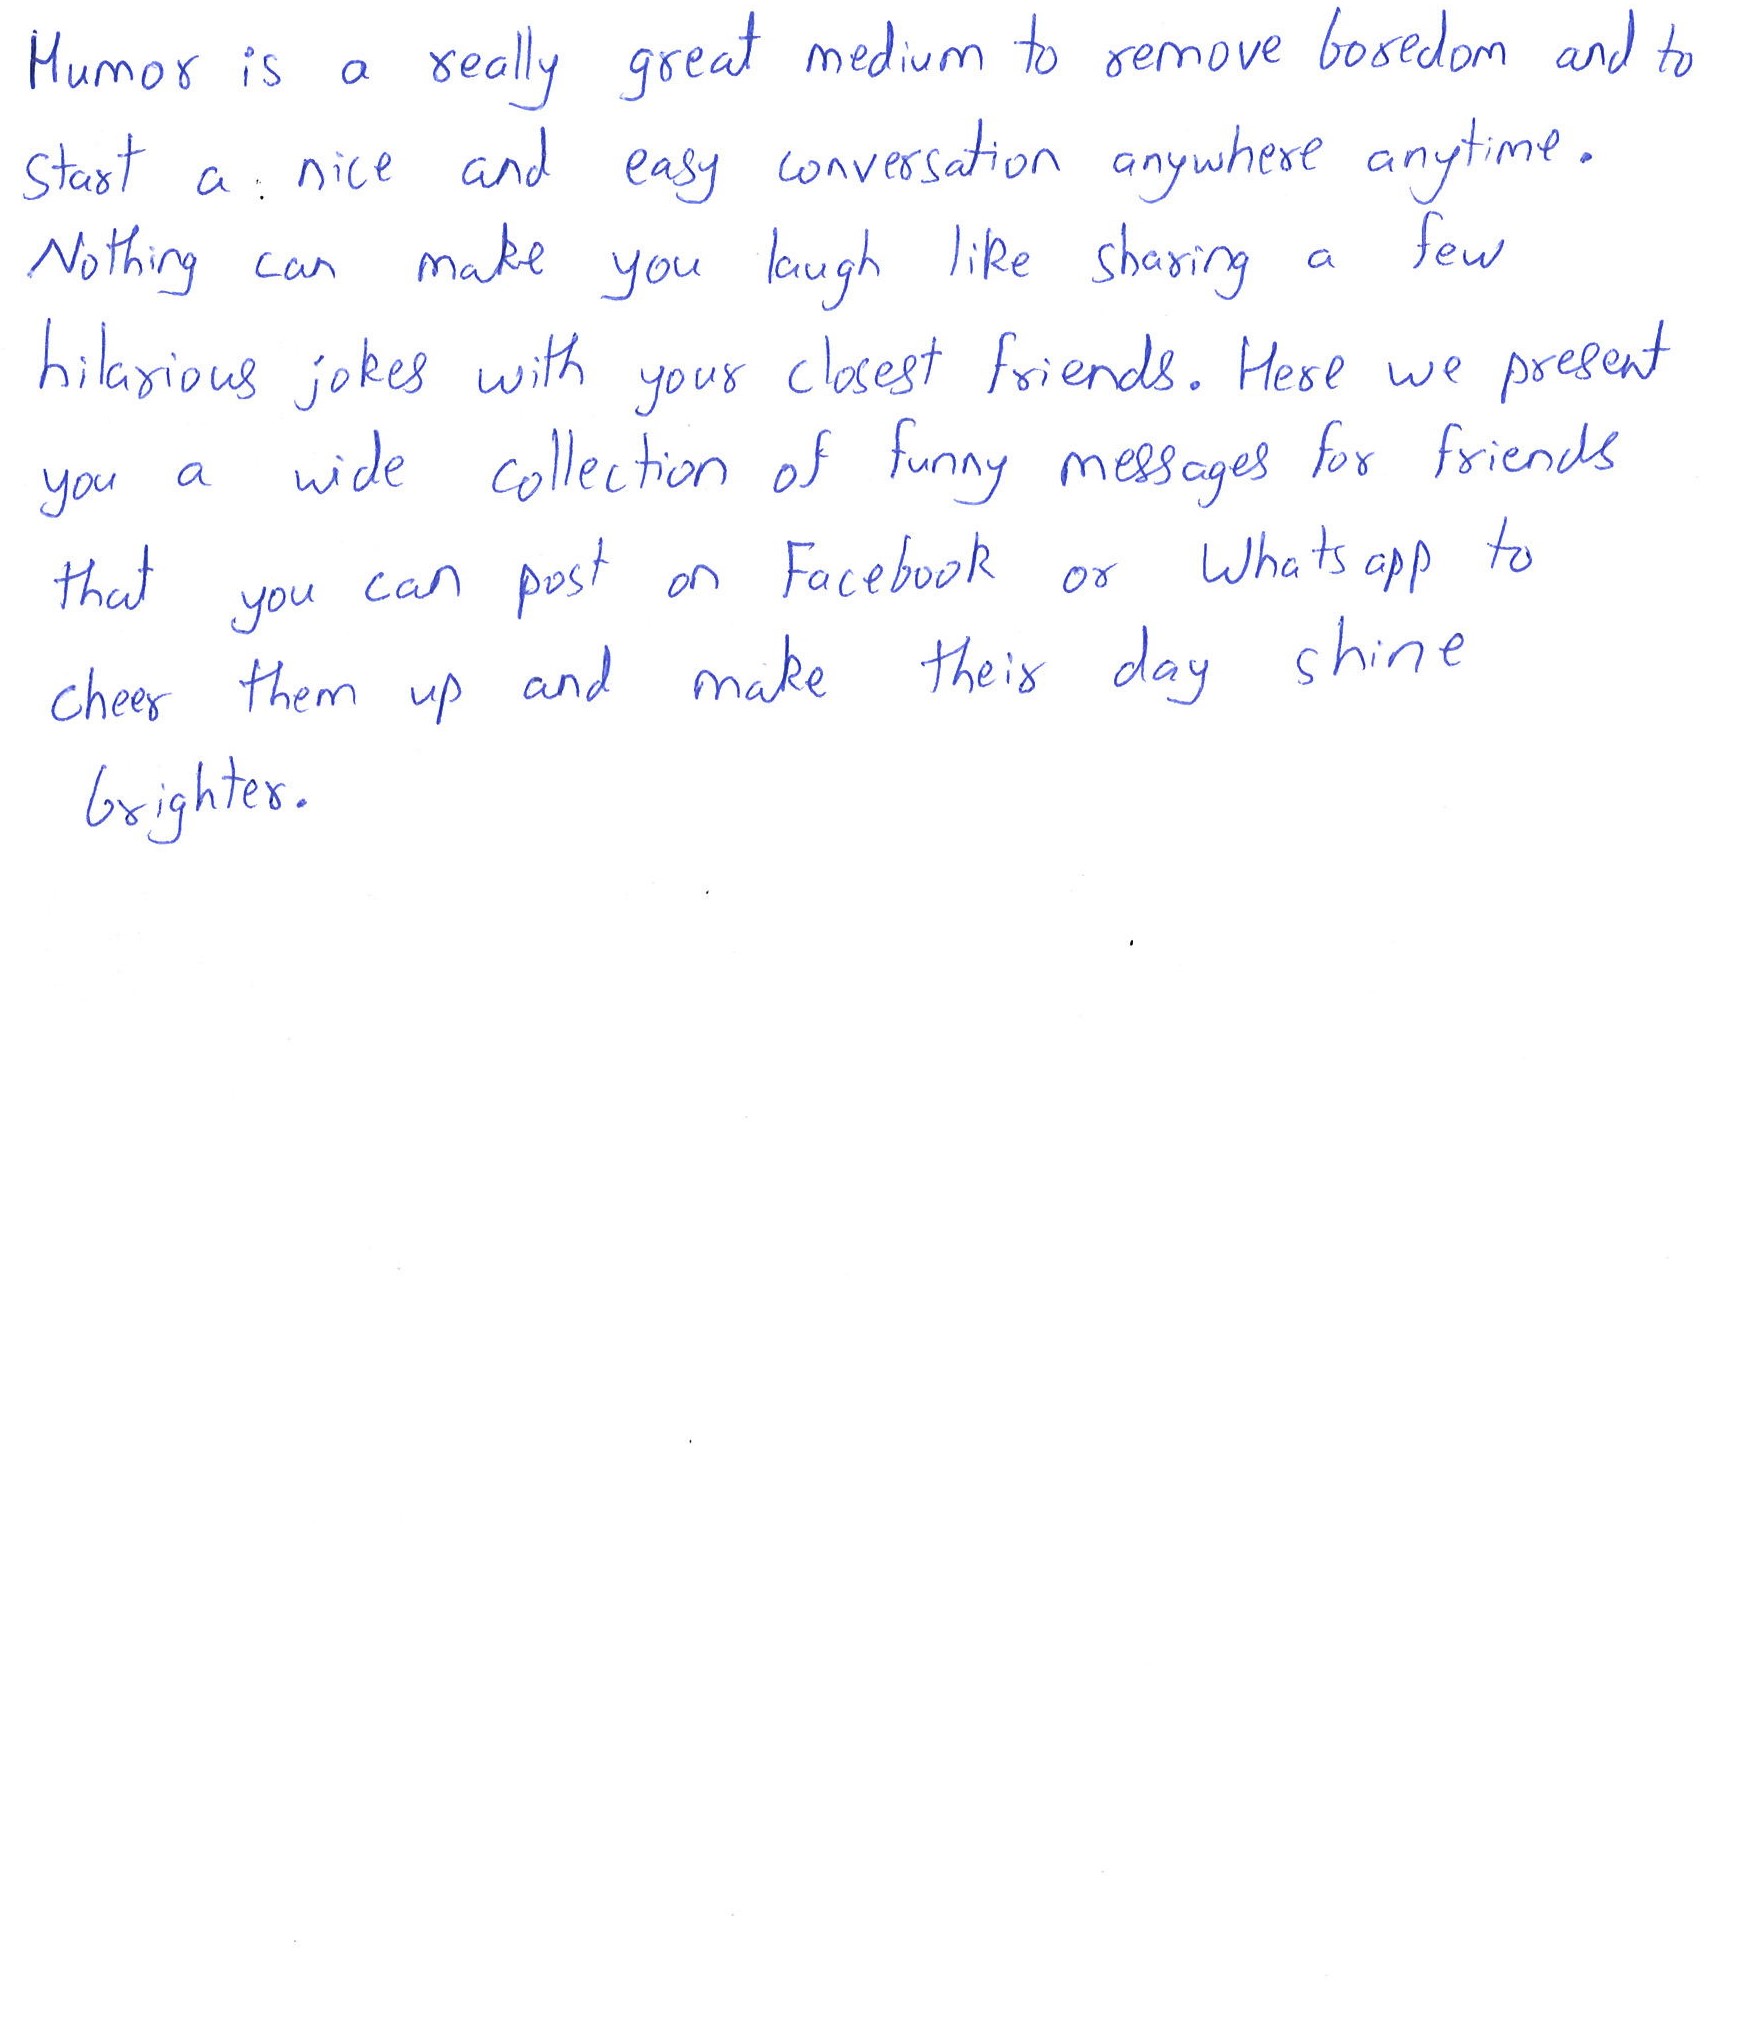 Humor is a really great medium to remove boredom and to
start a nice and easy conversation anywhere anytime.
Nothing can make you laugh like sharing a few
hilarious jokes with your closest friends. Here we present
you a wide collection of funny messages for friends
that you can post on Facebook or Whatsapp to
cheer them up and make their day shine
brighter.